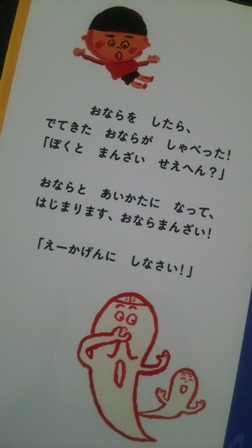 おならを　したら、
でてきた　おならが　しゃべった!
「ぼくと　まんざい　せえへん?」
おならと　あいかたに　なって、
はじまります、おならまんざい!
「えーかげんに　しなさい!」